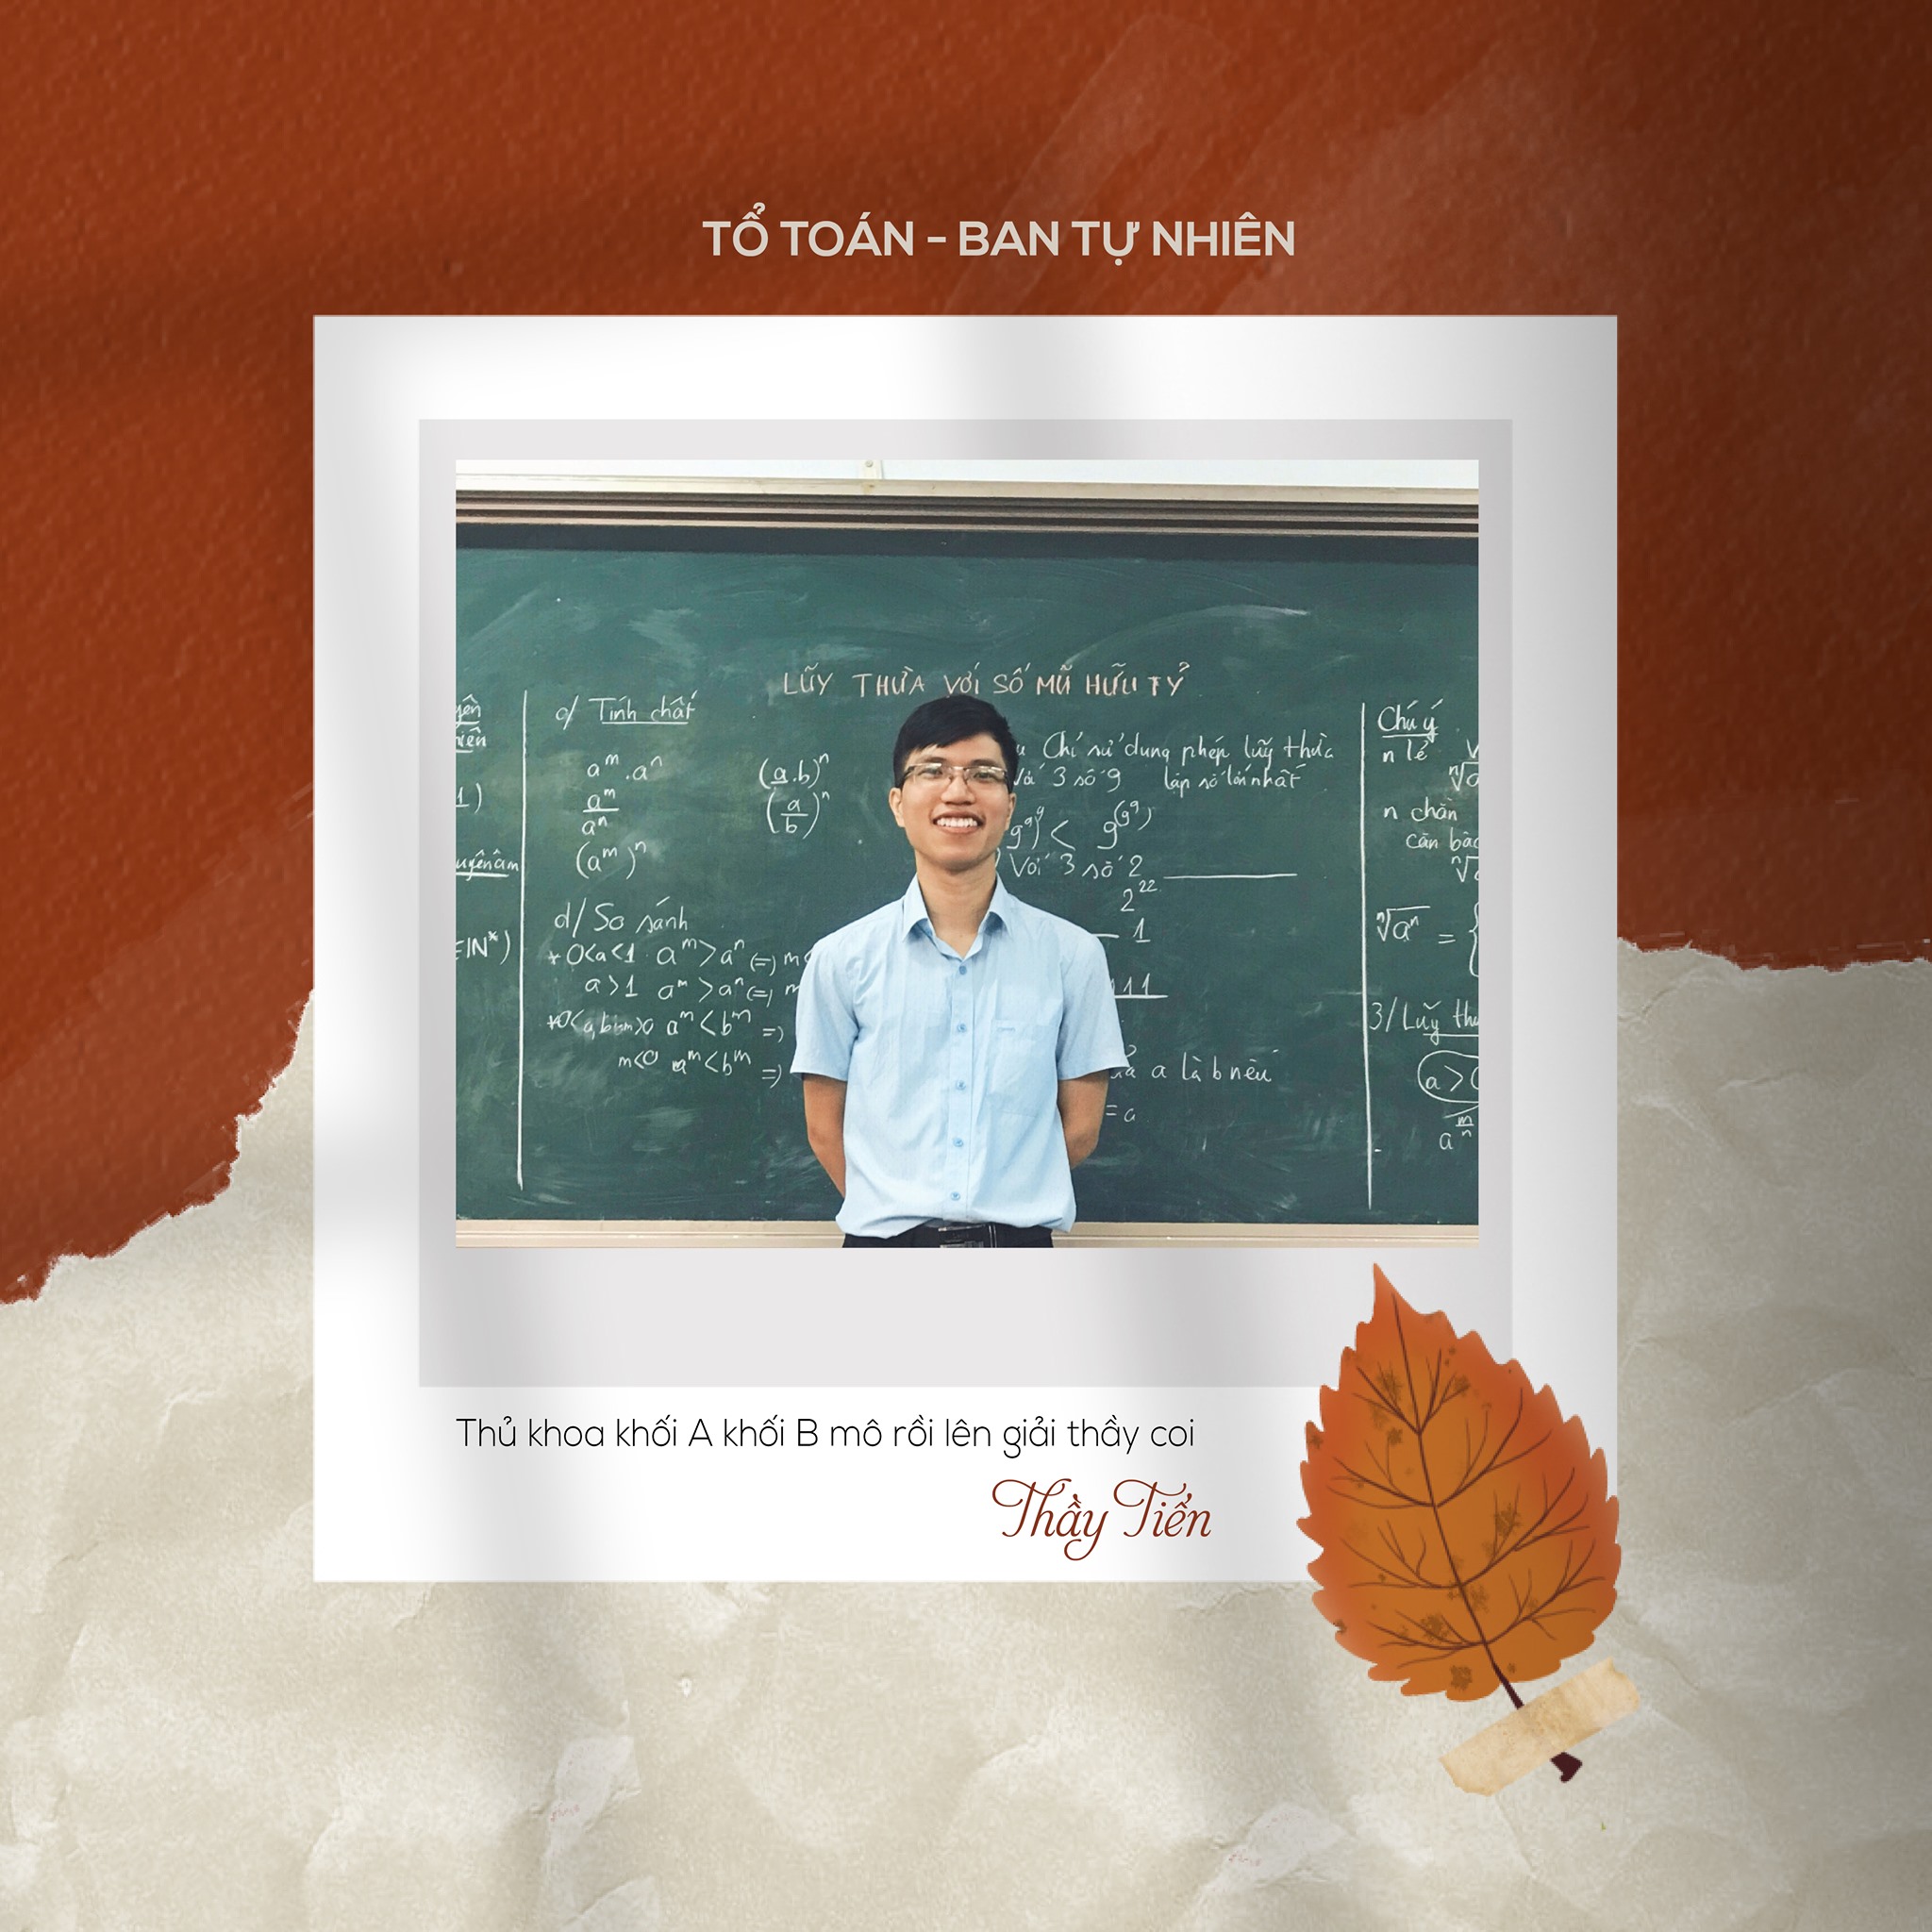 TỔ TOÁN - BAN TỰ NHIÊN
LŨY THỪA VỚI SỐ MŨ HỮU TỶ
c/ Tính chất
a^m.a^n
(a.b)^n
a^m/a^n
(a/b)^n
(a^m)^n
d/ So sánh
+ 0<a<1 a^m > a^n (=) m<
a>1 a^m > a^n (=) m
a^m < b^m =)
m<0 a^m < b^m =)
Chỉ sử dụng phép lũy thừa
3 số 9 lập số lớn nhất
< 9^(9^9)
Với 3 số 2
2^22
1
a là b nếu
= a
1)
∈ℕ*)
Chú ý
n lẻ
n chẵn
Căn bậc
ⁿ√a^n = {
3/ Lũy
a > 0
a^(m/n)
Thủ khoa khối A khối B mô rồi lên giải thầy coi
Thầy Tiển